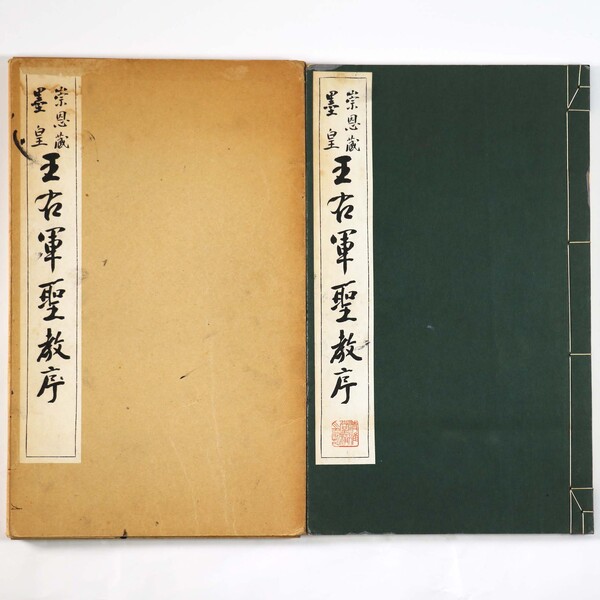 崇恩蔵
墨皇
王右軍聖教序
崇恩蔵
墨皇
王右軍聖教序